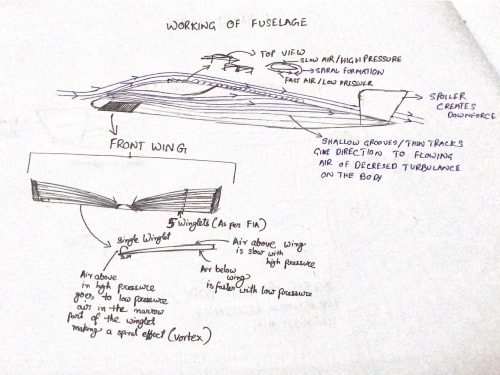 WORKING OF FUSELAGE
TOP VIEW
SLOW AIR/HIGH PRESSURE
SPIRAL FORMATION
FAST AIR/LOW PRESSUER
SPOILER
CREATES
DOWNFORCE
SHALLOW GROOVES/THIN TRACKS
GIVE DIRECTION TO FLOWING
AIR OF DECRESED TURBULANCE
ON THE BODY
FRONT WING
5 Winglets (As per FIA)
Single Winglet
Air above wing
is slow with
high pressure
Air below
wing
is faster with low pressure
Air above
in high pressure
goes to low pressure
air in the narrow
part of the winglet
making a spiral effect (vortex)